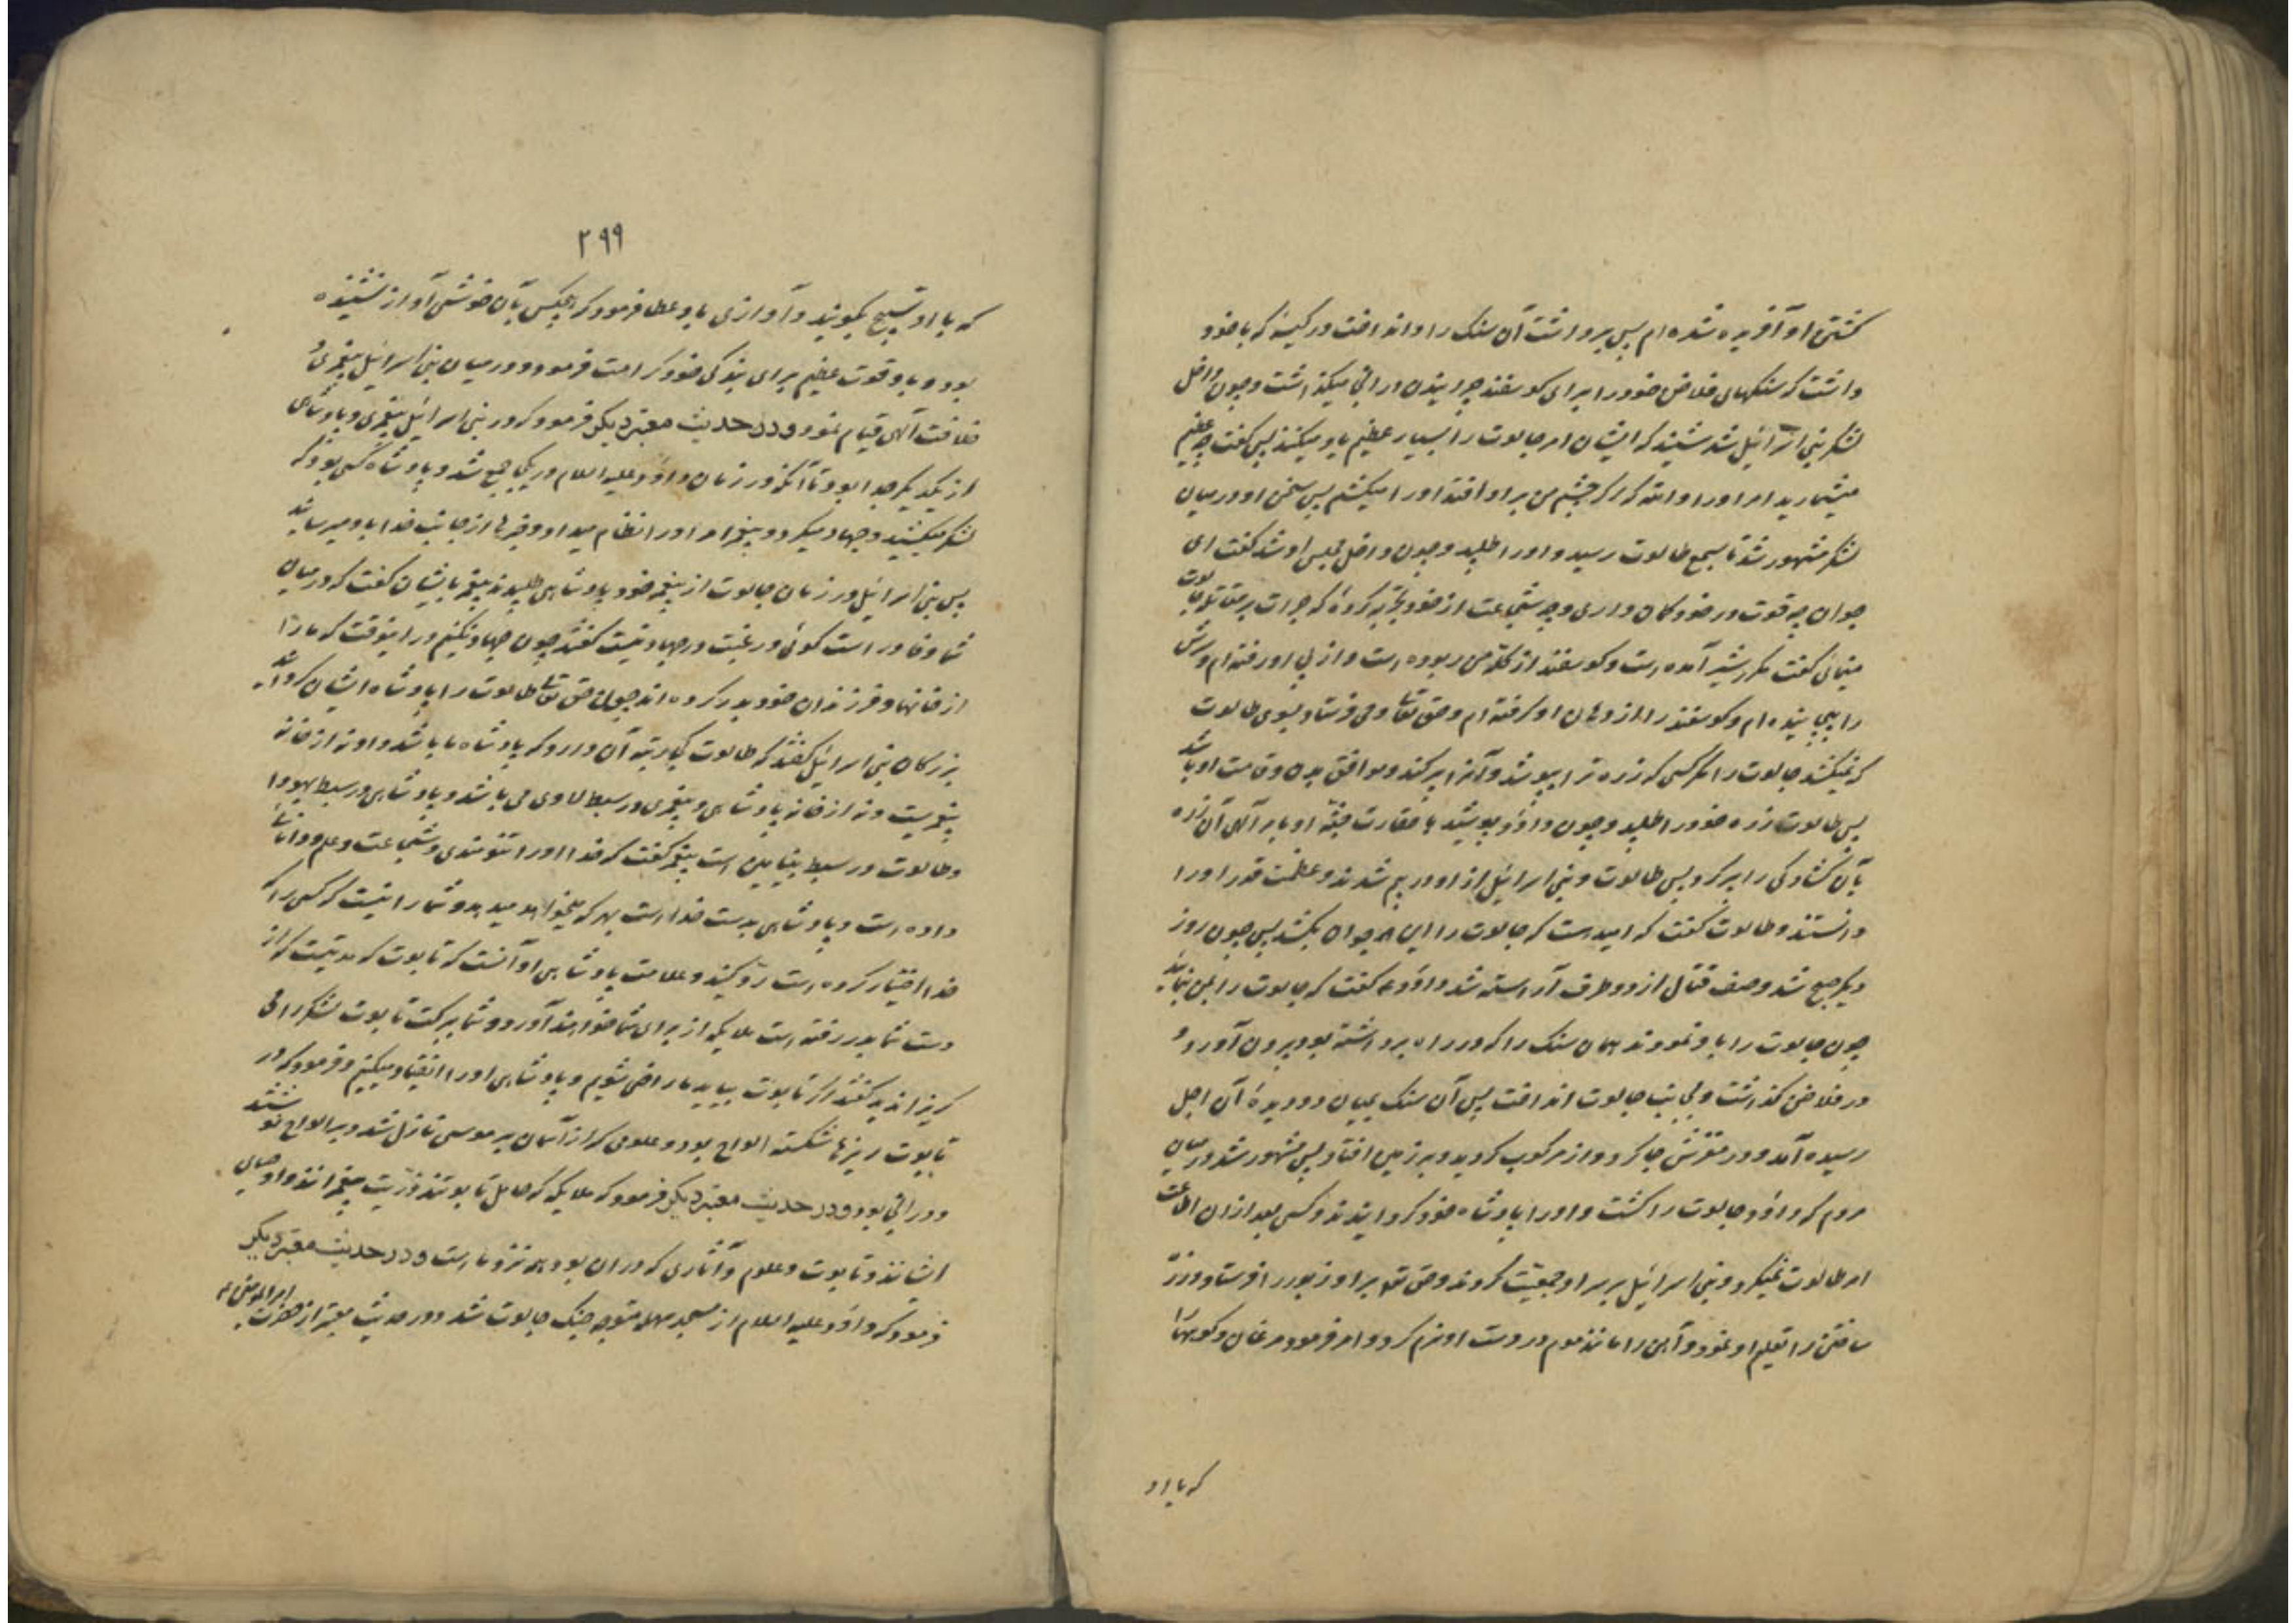 کشتن او آفریده شده ام پس برداشت آن سنک را و انداخت در کیسهٔ که با خود
داشت که سنکهای فلاخن خود را برای کوسفند چرانیدن در آن میکذاشت و چون داخل
لشکر بنی اسرائیل شد شنید که ایشان امر جالوت را بسیار عظیم یاد میکنند پس کفت چه عظیم
میشمارید امر او را و الله که اکر چشم من بر او افتد او را میکشم پس سخن او در میان
لشکر مشهور شد تا بسمع طالوت رسید و او را طلبید و چون داخل مجلس او شد کفت ای
جوان چه قوت در خود کمان داری و چه شجاعت از خود تجربه کردهٔ که جرات بر مقاتله جالوت
مینمائی کفت مکرر شیر آمده است و کوسفند از کلهٔ من ربوده است و از پی او رفته ام و سرش
را پیچانیده ام و کوسفند را از دهان او کرفته ام و حق تعالی وحی فرستاد بسوی طالوت
که نمیکشد جالوت را مکر کسی که زره ترا بپوشد و آنرا پر کند و موافق بدن و قامت او باشد
پس طالوت زره خود را طلبید و چون داود پوشید با حقارت جثهٔ او بامر آلهی آن زره
بآن کشادکی را پر کرد پس طالوت و بنی اسرائیل از او در بیم شدند و عظمت قدر او را
دانستند و طالوت کفت که امید هست که جالوت را این جوان بکشد پس چون روز
دیکر صبح شد و صف قتال از دو طرف آراسته شد داود ع کفت که جالوت را بمن بنمائید
چون جالوت را باو نمودند همان سنک را که در راه برداشته بود بیرون آورد و
در فلاخن کذاشت و بجانب جالوت انداخت پس آن سنک بمیان دو دیدهٔ آن اجل
رسیده آمد و در مغزش جا کرد و از مرکوب کردید و بر زمین افتاد پس مشهور شد در میان
مردم که داود جالوت را کشت و او را پادشاه خود کردانیدند و کسی بعد از آن اطاعت
امر طالوت نمیکرد و بنی اسرائیل بر سر او جمعیت کردند و حق تع بر او زبور را فرستاد و زره
ساختن را تعلیم او نمود و آهن را مانند موم در دست او نرم کرد و امر فرمود مرغان و کوهها را
که با او
۲۹۹
که با او تسبیح بکویند و آوازی باو عطا فرمود که هیچکس بآن خوشی آواز نشنیده
بود و باو قوت عظیم برای بندکی خود کرامت فرمود و در میان بنی اسرائیل پیغمبری و
خلافت آلهی قیام نمود و در حدیث معتبر دیکر فرمود که در بنی اسرائیل پیغمبری و پادشاهی
از یکدیکر جدا بود تا آنکه در زمان داود علیه السلام در یکجا جمع شد و پادشاه کسی بود که
لشکر میکشید و جهاد میکرد و پیغمبر امر او را انتظام میداد و خبرها از جانب خدا باو میرسانید
پس بنی اسرائیل در زمان جالوت از پیغمبر خود پادشاهی طلبیدند پیغمبر بایشان کفت که در میان
شما وفا و راست کوئی و رغبت در جهاد نیست کفتند چون جهاد نکنیم در اینوقت که ما را
از خانها و فرزندان خود بدر کرده اند چون حق تعالی طالوت را پادشاه ایشان کردانید
بزرکان بنی اسرائیل کفتند که طالوت کجا رتبهٔ آن دارد که پادشاه ما باشد و او نه از خانه
پیغمبریست و نه از خانه پادشاهی و پیغمبری در سبط لاوی می باشد و پادشاهی در سبط یهودا
و طالوت در سبط بنیامین است پیغمبر کفت که خدا او را تنومندی و شجاعت و علم و دانائی
داده است و پادشاهی بدست خداست بهر که میخواهد میدهد و شما را نیست که کسی را که
خدا اختیار کرده است رد کنید و علامت پادشاهی او آنست که تابوت که مدتیست که از
دست شما بدر رفته است ملایکه از برای شما خواهند آورد و شما ببرکت تابوت لشکرها می
کریزاندید کفتند اکر تابوت بیاید ما راضی شویم و پادشاهی او را انقیاد میکنیم و فرمود که در
تابوت ریزهای شکستهٔ الواح بود و علومی که از آسمان بر موسی نازل شد و بر الواح نوشتند
در آن بود و در حدیث معتبر دیکر فرمود که ملایکه که حامل تابوتند ذریت پیغمبرانند و اوصیای
ایشانند و تابوت و علوم و آثاری که در آن بود همه نزد ماست و در حدیث معتبر دیکر
فرمود که داود علیه السلام از مسجد سهله متوجه جنک جالوت شد و در حدیث معتبر از حضرت امیر المومنین ع